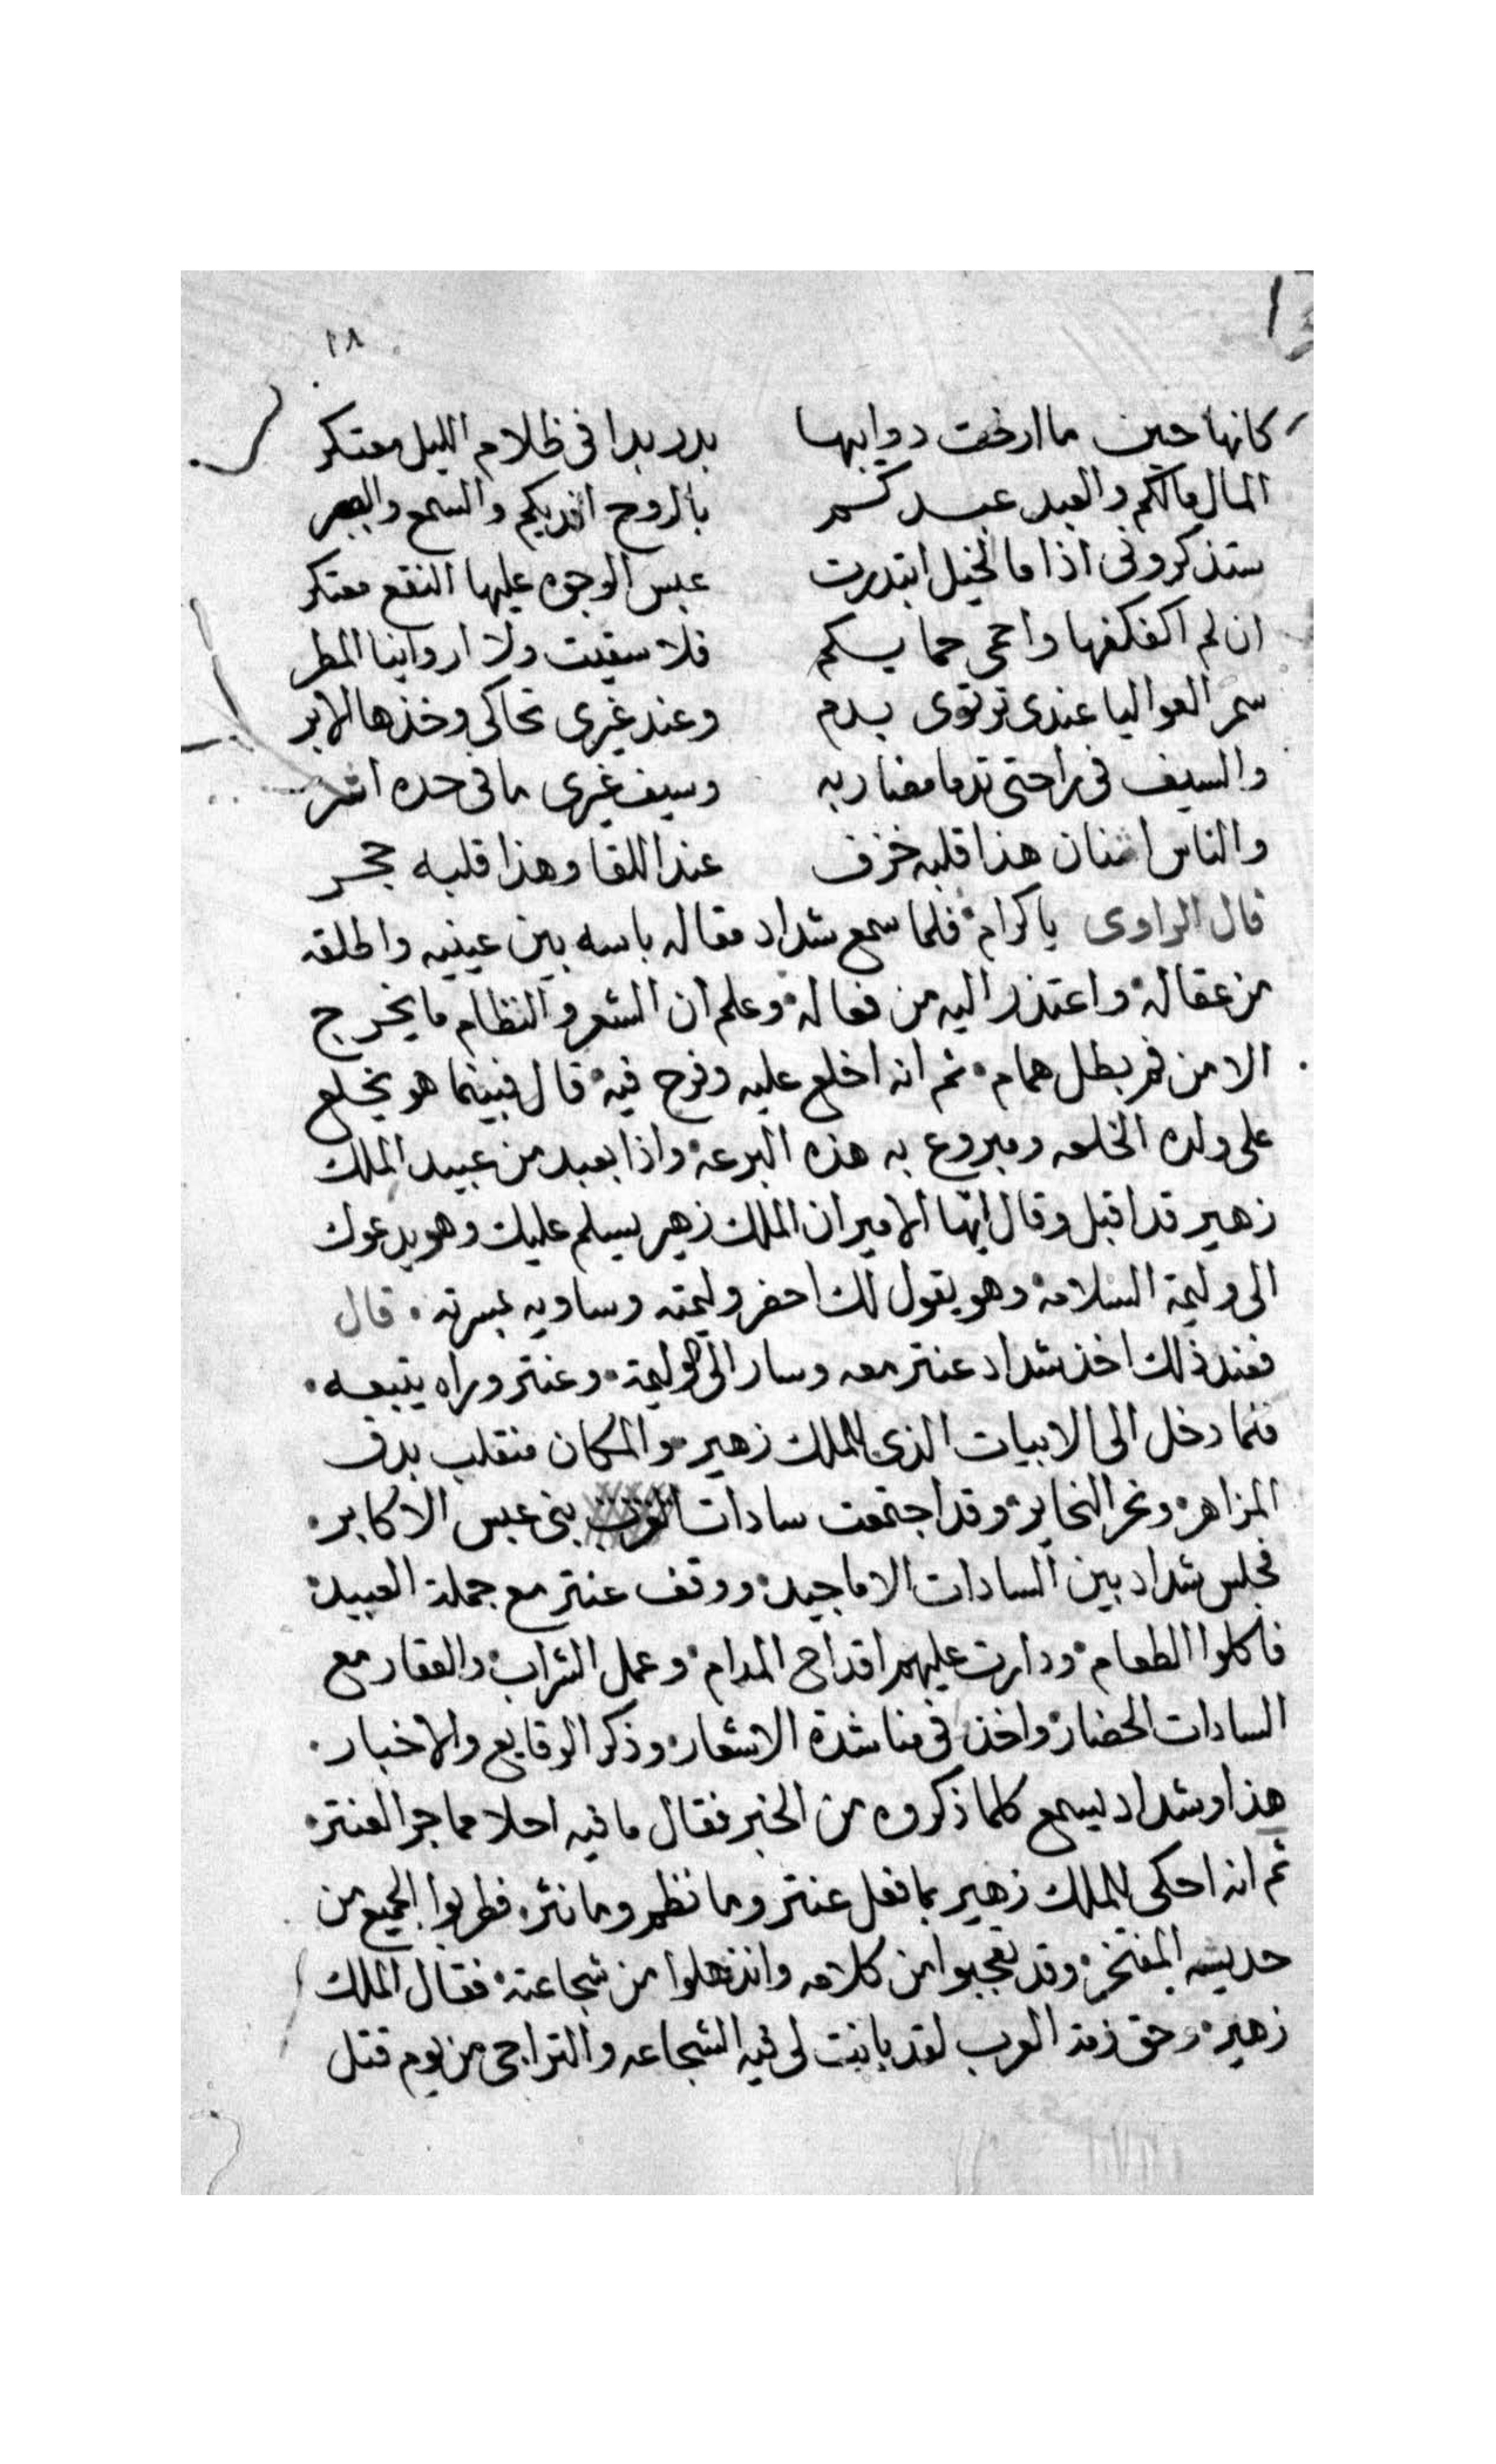 ١٨
كانها حين ما ارخت دوايبها بدر بدا فى ظلام الليل معتكر
المال مالكم والعبد عبدكم بالروح افديكم والسمع والبصر
ستذكرونى اذا ما الخيل ابتدرت عبس الوجوه عليها النقع معتكر
ان لم اكفكفها واحمى حمايسكم فلا سقيت ولا اروانيا المطر
سمر العواليا عندى ترتوى بدم وعند غيرى تحاكى وخذها الابر
والسيف فى راحتى تدما مضاربه وسيف غيرى ما فى حده اثر
والناس اثنان هذا قلبه خزف عند اللقا وهذا قلبه حجر
قال الراوى ياكرام فلما سمع شداد مقاله باسه بين عينيه واطلقه
من عقاله واعتذر اليه من فعاله وعلم ان الشعر والنظام ما يخرج
الا من فم بطل همام ثم انه اخلع عليه وفرح فيه قال فبينما هو يخلع
على ولده الخلعه ويبروع به هذه البرعة واذا بعبد من عبيد الملك
زهير قد اقبل وقال ايها الامير ان الملك زهير يسلم عليك وهو يدعوك
الى وليمة السلامة وهو يقول لك احضر وليمته وساويه بمسرته قال
فعند ذلك اخذ شداد عنتر معه وسار الى الوليمة وعنتر وراه يتبعه
فلما دخل الى الابيات الذى للملك زهير والمكان منقلب بدق
المزاهر ونحر النحاير وقد اجتمعت سادات بنى عبس الاكابر
فجلس شداد بين السادات الاماجيد ووقف عنتر مع جملة العبيد
فاكلوا الطعام ودارت عليهم اقداح المدام وعمل الشراب والعقار مع
السادات الحضار واخذ فى مناشدة الاشعار وذكر الوقايع والاخبار
هذا وشداد يسمع كلما ذكروه من الخبر فقال ما فيه احلا مما جرا لعنتر
ثم انه احكى للملك زهير بما فعل عنتر وما نظم وما نثر فطربوا الجميع من
حديثه المفتخر وقد تعجبوا من كلامه وانذهلوا من شجاعته فقال الملك
زهير وحق ذمة العرب لقد بانت لى فيه الشجاعه والتراجى من يوم قتل